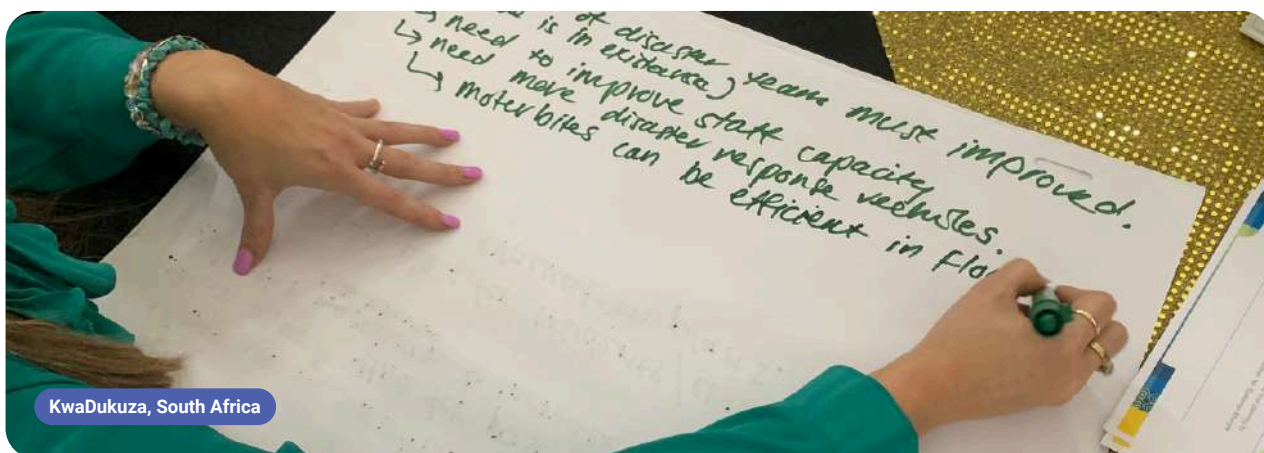 of disaster team must improved.
is in existance,
↳ need to improve staff capacity
↳ need more disaster response veehiles.
↳ moterbikes can be efficient in Flo
KwaDukuza, South Africa